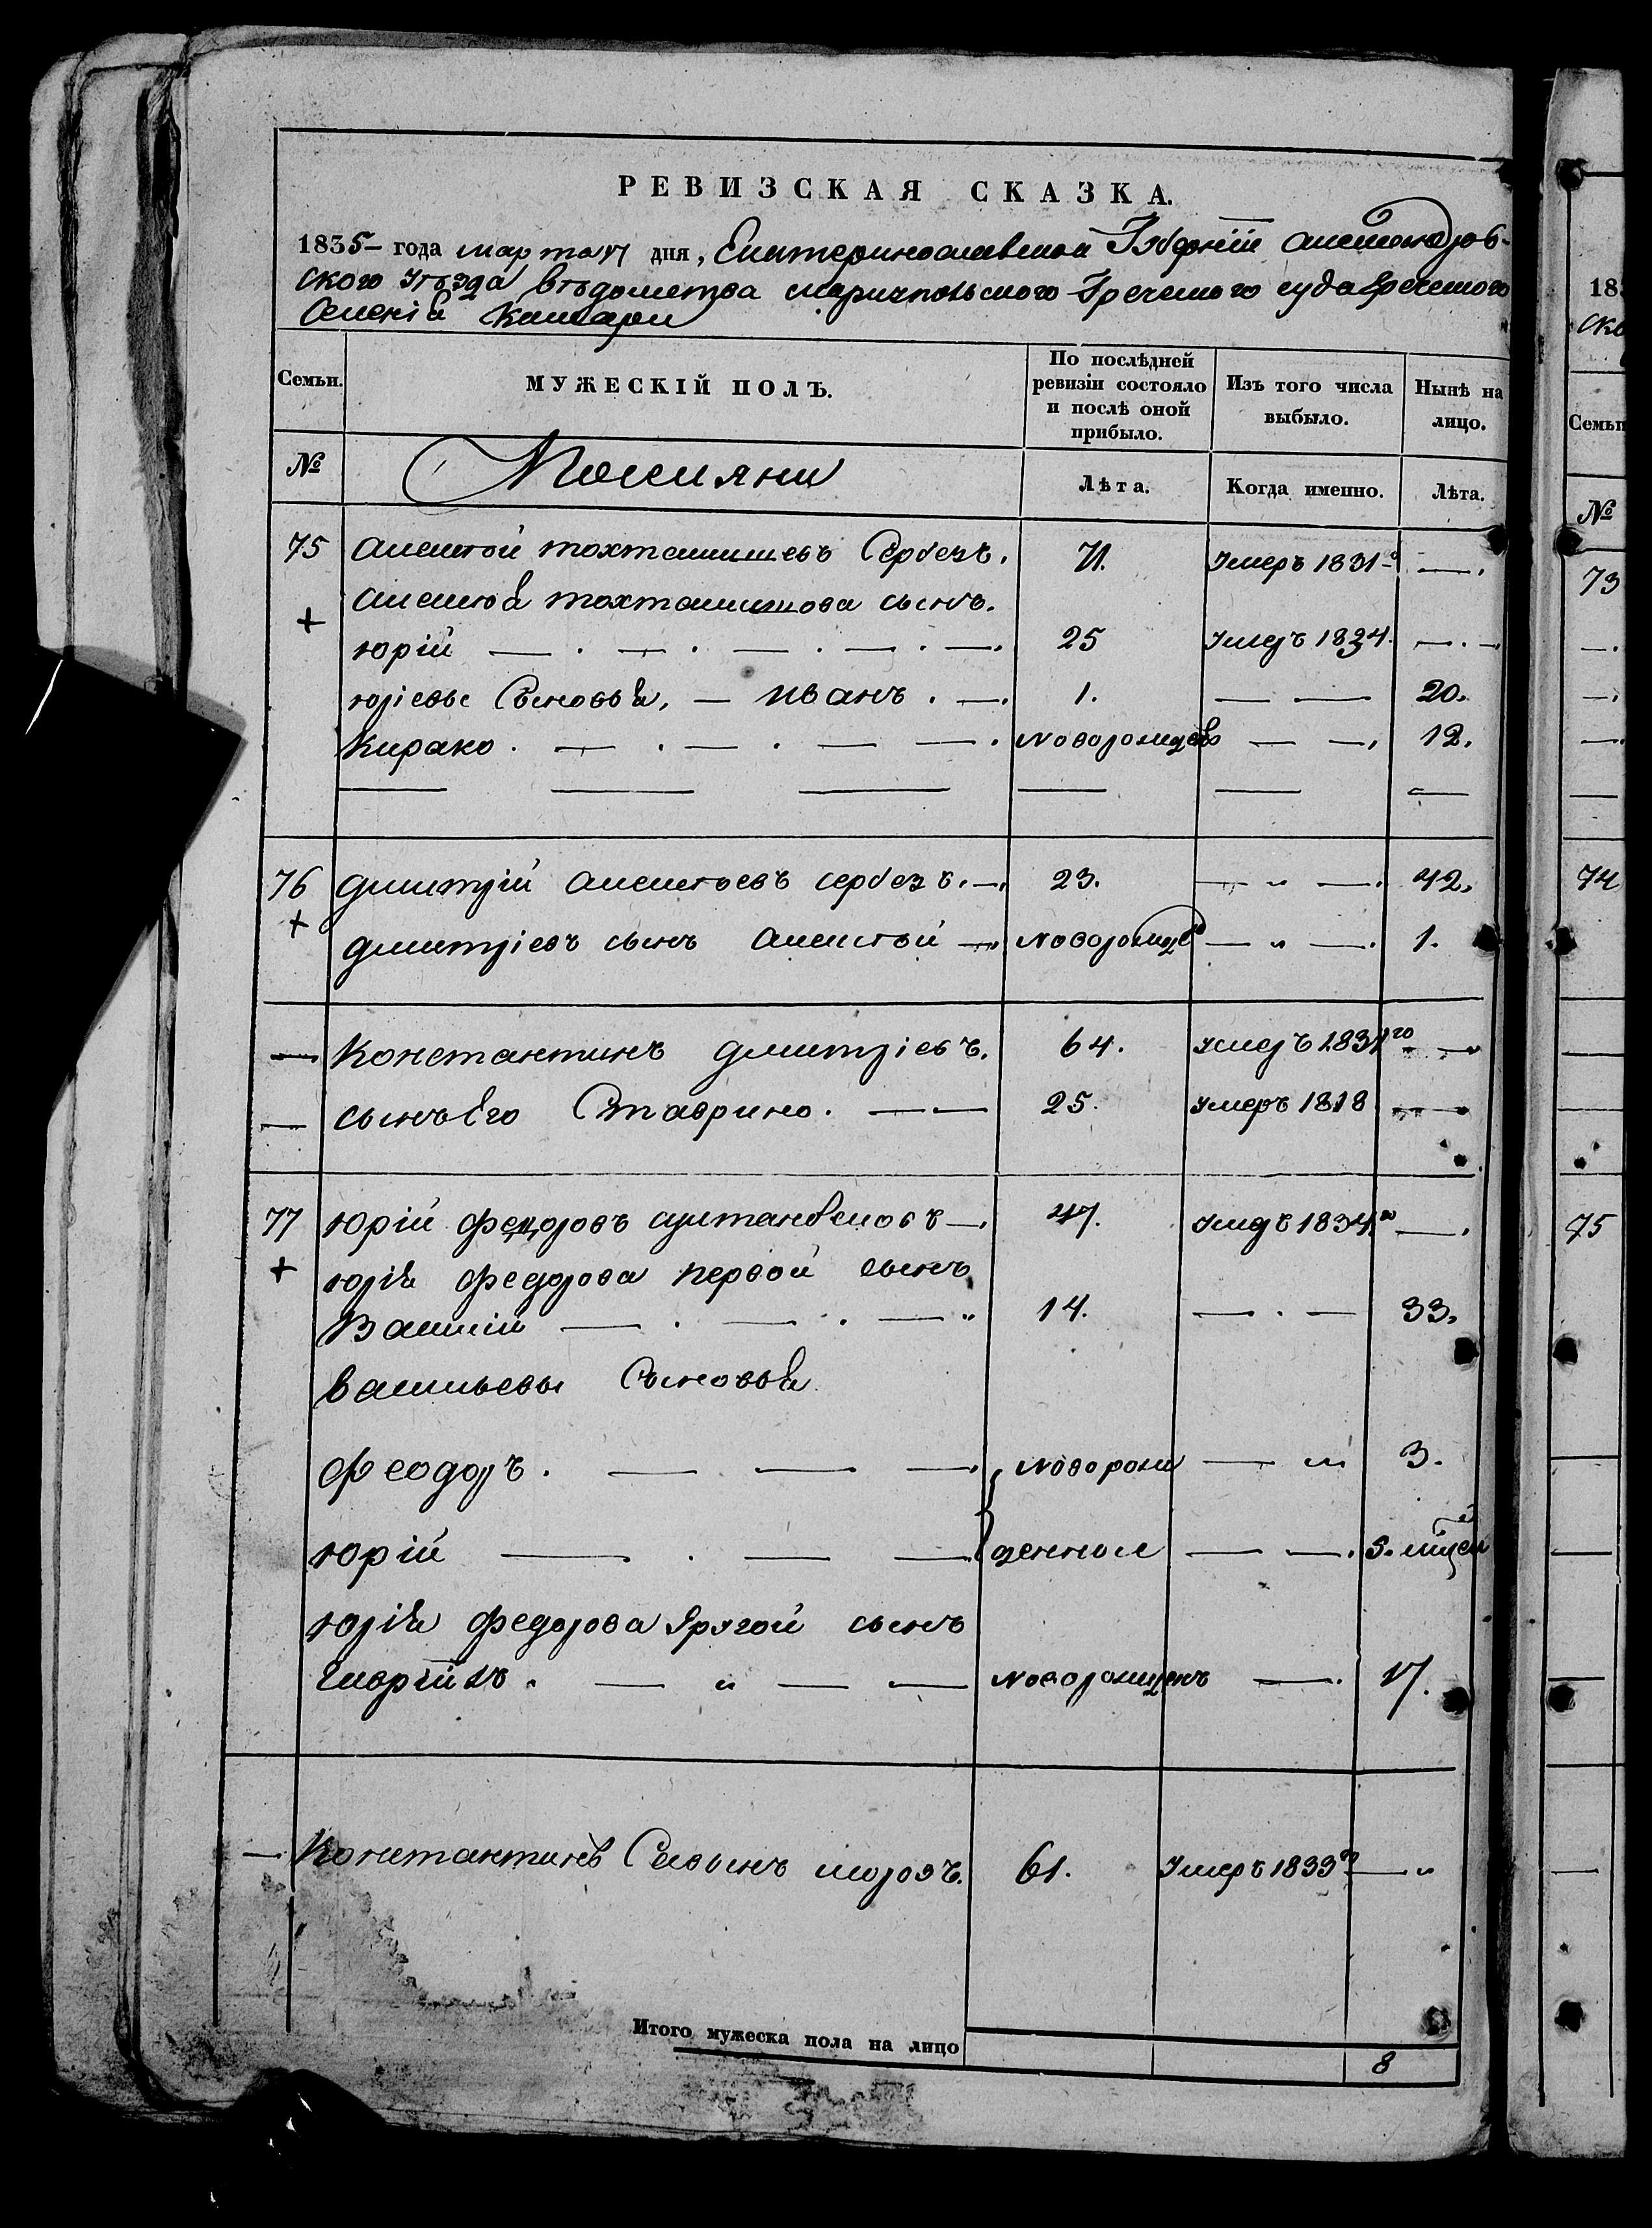 РЕВИЗСКАЯ СКАЗКА.
1835 – года марта 17 дня, Екатеринославской Губерніи Александров-
ского уѣзда вѣдомства маріупольского Греческого суда греческого
Селенія
Семьи. МУЖЕСКІЙ ПОЛЪ. По послѣдней ревизіи состояло и послѣ оной прибыло. Изъ того числа выбыло. Нынѣ на лицо.
№ Поселяни Лѣта. Когда именно. Лѣта.
75 Алексѣй тохтамишевъ Сербезъ. 71. Умеръ 1831 — .
Алексѣя тохтамишова сынъ.
+ юрій — . — . — . — . — . 25 Умеръ 1834. — . —
юріевы Сыновья, — Иванъ . — . 1. — — 20.
Кирако . — . — . — — . Новорожденъ — — . 12.
76 дмитрій Алексѣевъ сербезъ. — . 23. — „ — . 42.
+ дмитріевъ сынъ Алексѣй — Новорожде — „ — . 1.
— Константинъ дмитріевъ. 64. Умеръ 1831го — —
— сынъ Его Ставрино. — — 25. Умеръ 1818 — —
77 юрій федоровъ — . 47. Умеръ 1834го — .
+ юрія федорова первой сынъ
Василій — . — . — „ 14. — . — 33.
васильевы Сыновья
феодоръ . — — — . Новорож — „ 3.
юрій — . — — денные — — .
юрія федорова другой сынъ
Георгій . — „ — — Новорожденъ — . 17.
— Константинъ Савинъ морозъ. 61. Умеръ 1833го — „
Итого мужеска пола на лицо 8
183
Семьи
№
73
74
75